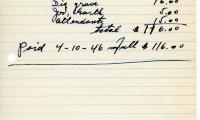 Dig grave 16.00
5.00
attendants 15.00
total $ 116.00
Paid 4-10-46 full $116.00